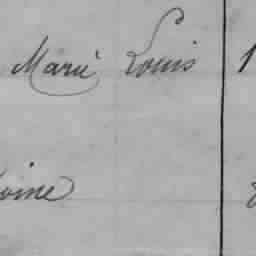 Marie Louis 1
oine